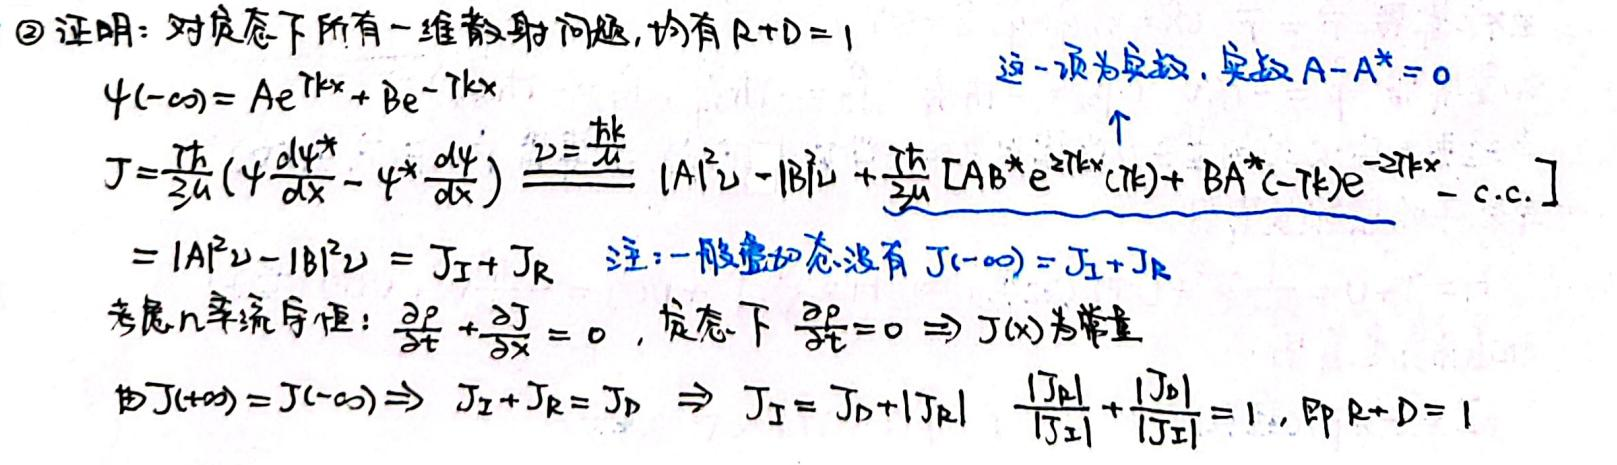 ② 证明：对定态下所有一维散射问题，均有 R+D=1
ψ(-∞)= Ae^{ikx} + Be^{-ikx}
这一项为实数，实数 A-A*=0
↑
J= iħ/2μ (ψ dψ*/dx - ψ* dψ/dx) ══(v=ħk/μ)══ |A|²v - |B|²v + iħ/2μ [AB* e^{2ikx}(ik) + BA*(-ik)e^{-2ikx} - c.c.]
= |A|²v - |B|²v = J_I + J_R 注：一般叠加态没有 J(-∞) = J_I + J_R
考虑几率流守恒：∂ρ/∂t + ∂J/∂x = 0，定态下 ∂ρ/∂t = 0 ⇒ J(x)为常量
由J(+∞) = J(-∞) ⇒ J_I + J_R = J_D ⇒ J_I = J_D + |J_R| |J_R|/|J_I| + |J_D|/|J_I| = 1，即 R+D=1